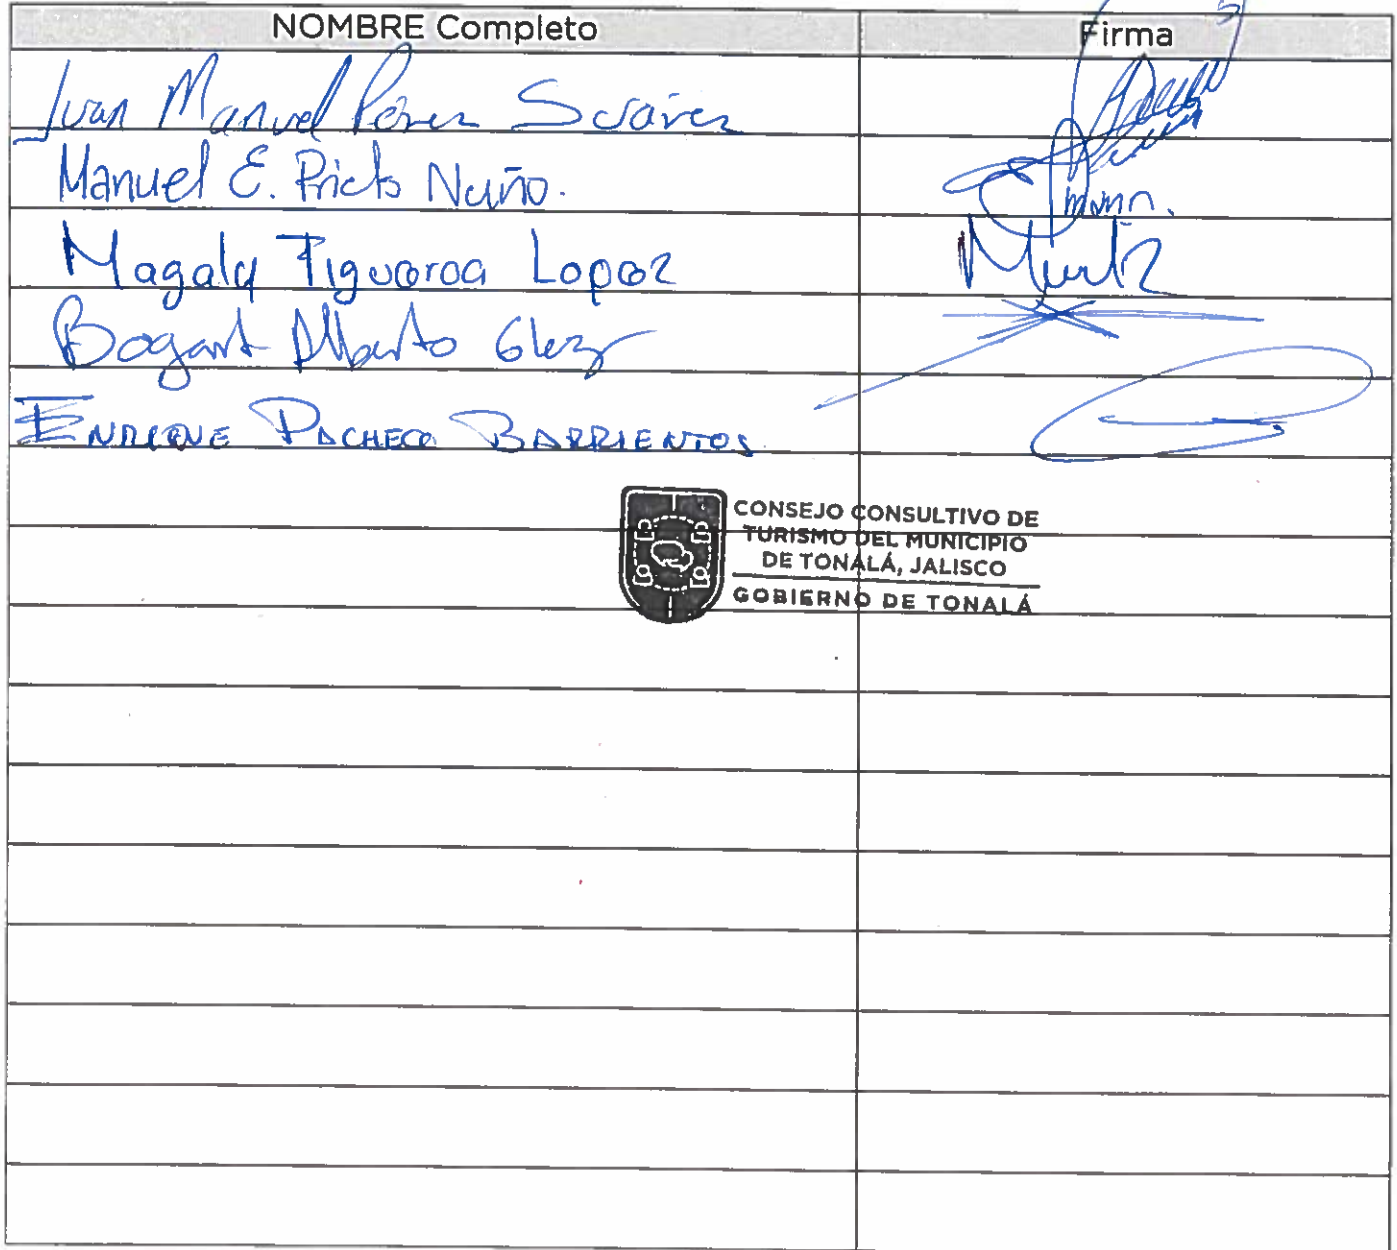 NOMBRE Completo Firma
Juan Manuel Pérez Suárez
Manuel E. Prieto Nuño.
Magaly Figueroa Lopez
Bogart Alberto Glez
ENRIQUE PACHECO BARRIENTOS
CONSEJO CONSULTIVO DE
TURISMO DEL MUNICIPIO
DE TONALÁ, JALISCO
GOBIERNO DE TONALÁ